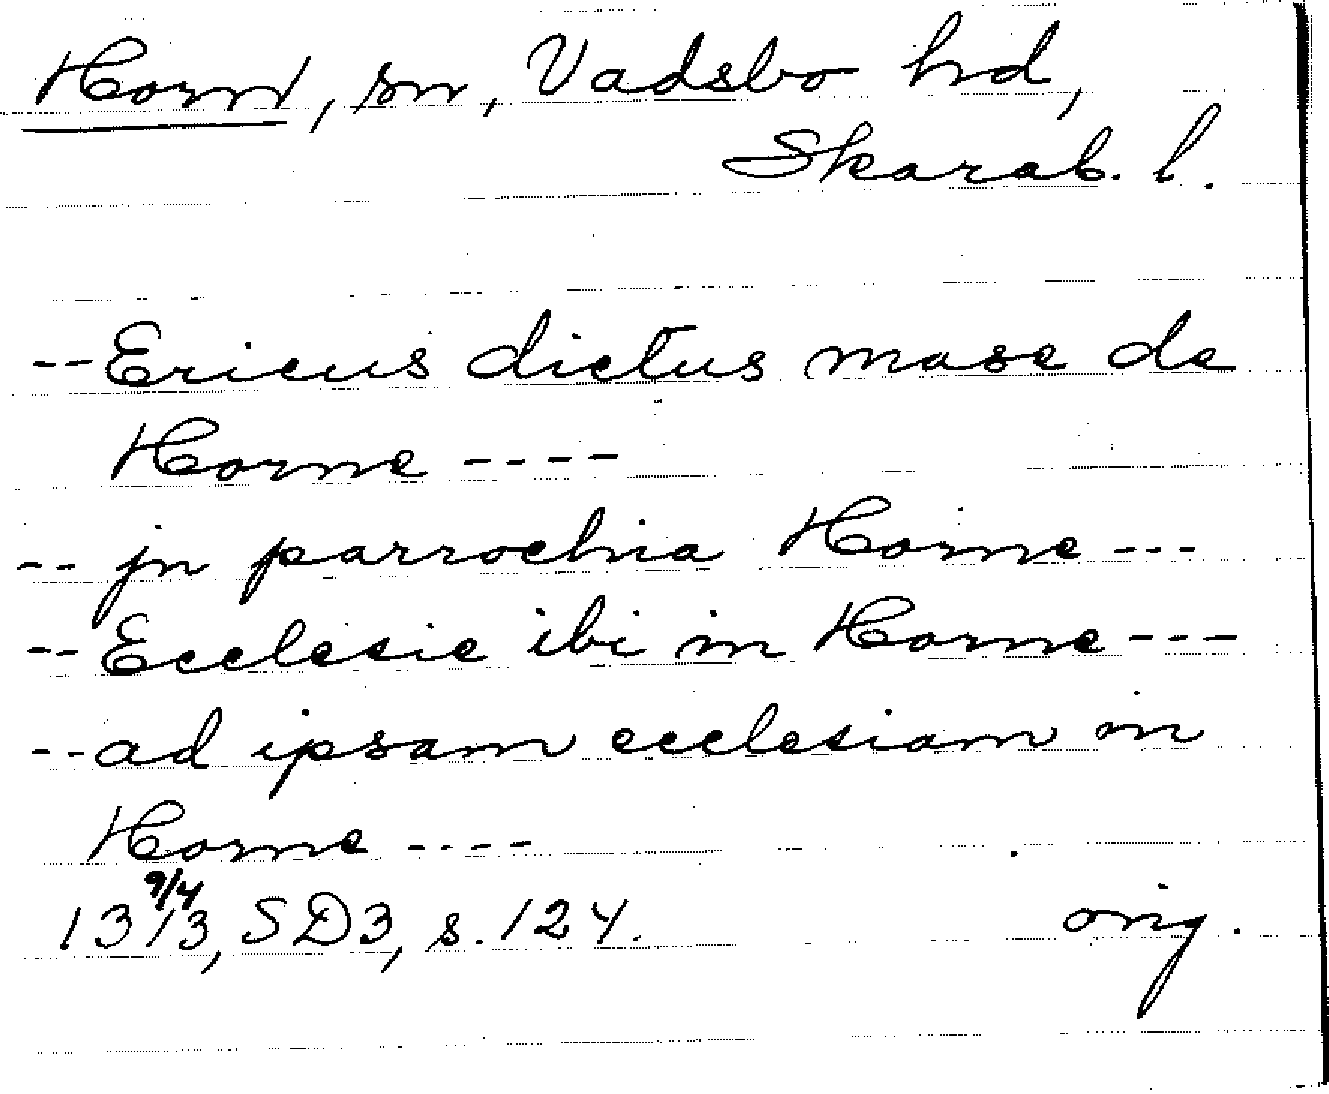 Horn, sn, Vadsbo hd,
Skarab. l.
-- Ericus dictus mase de
Horne ----
-- jn parrochia Horne ---
-- Ecclesie ibi in Horne ---
-- ad ipsam ecclesiam in
Horne ----
9/4
1313, SD3, s. 124. orig.